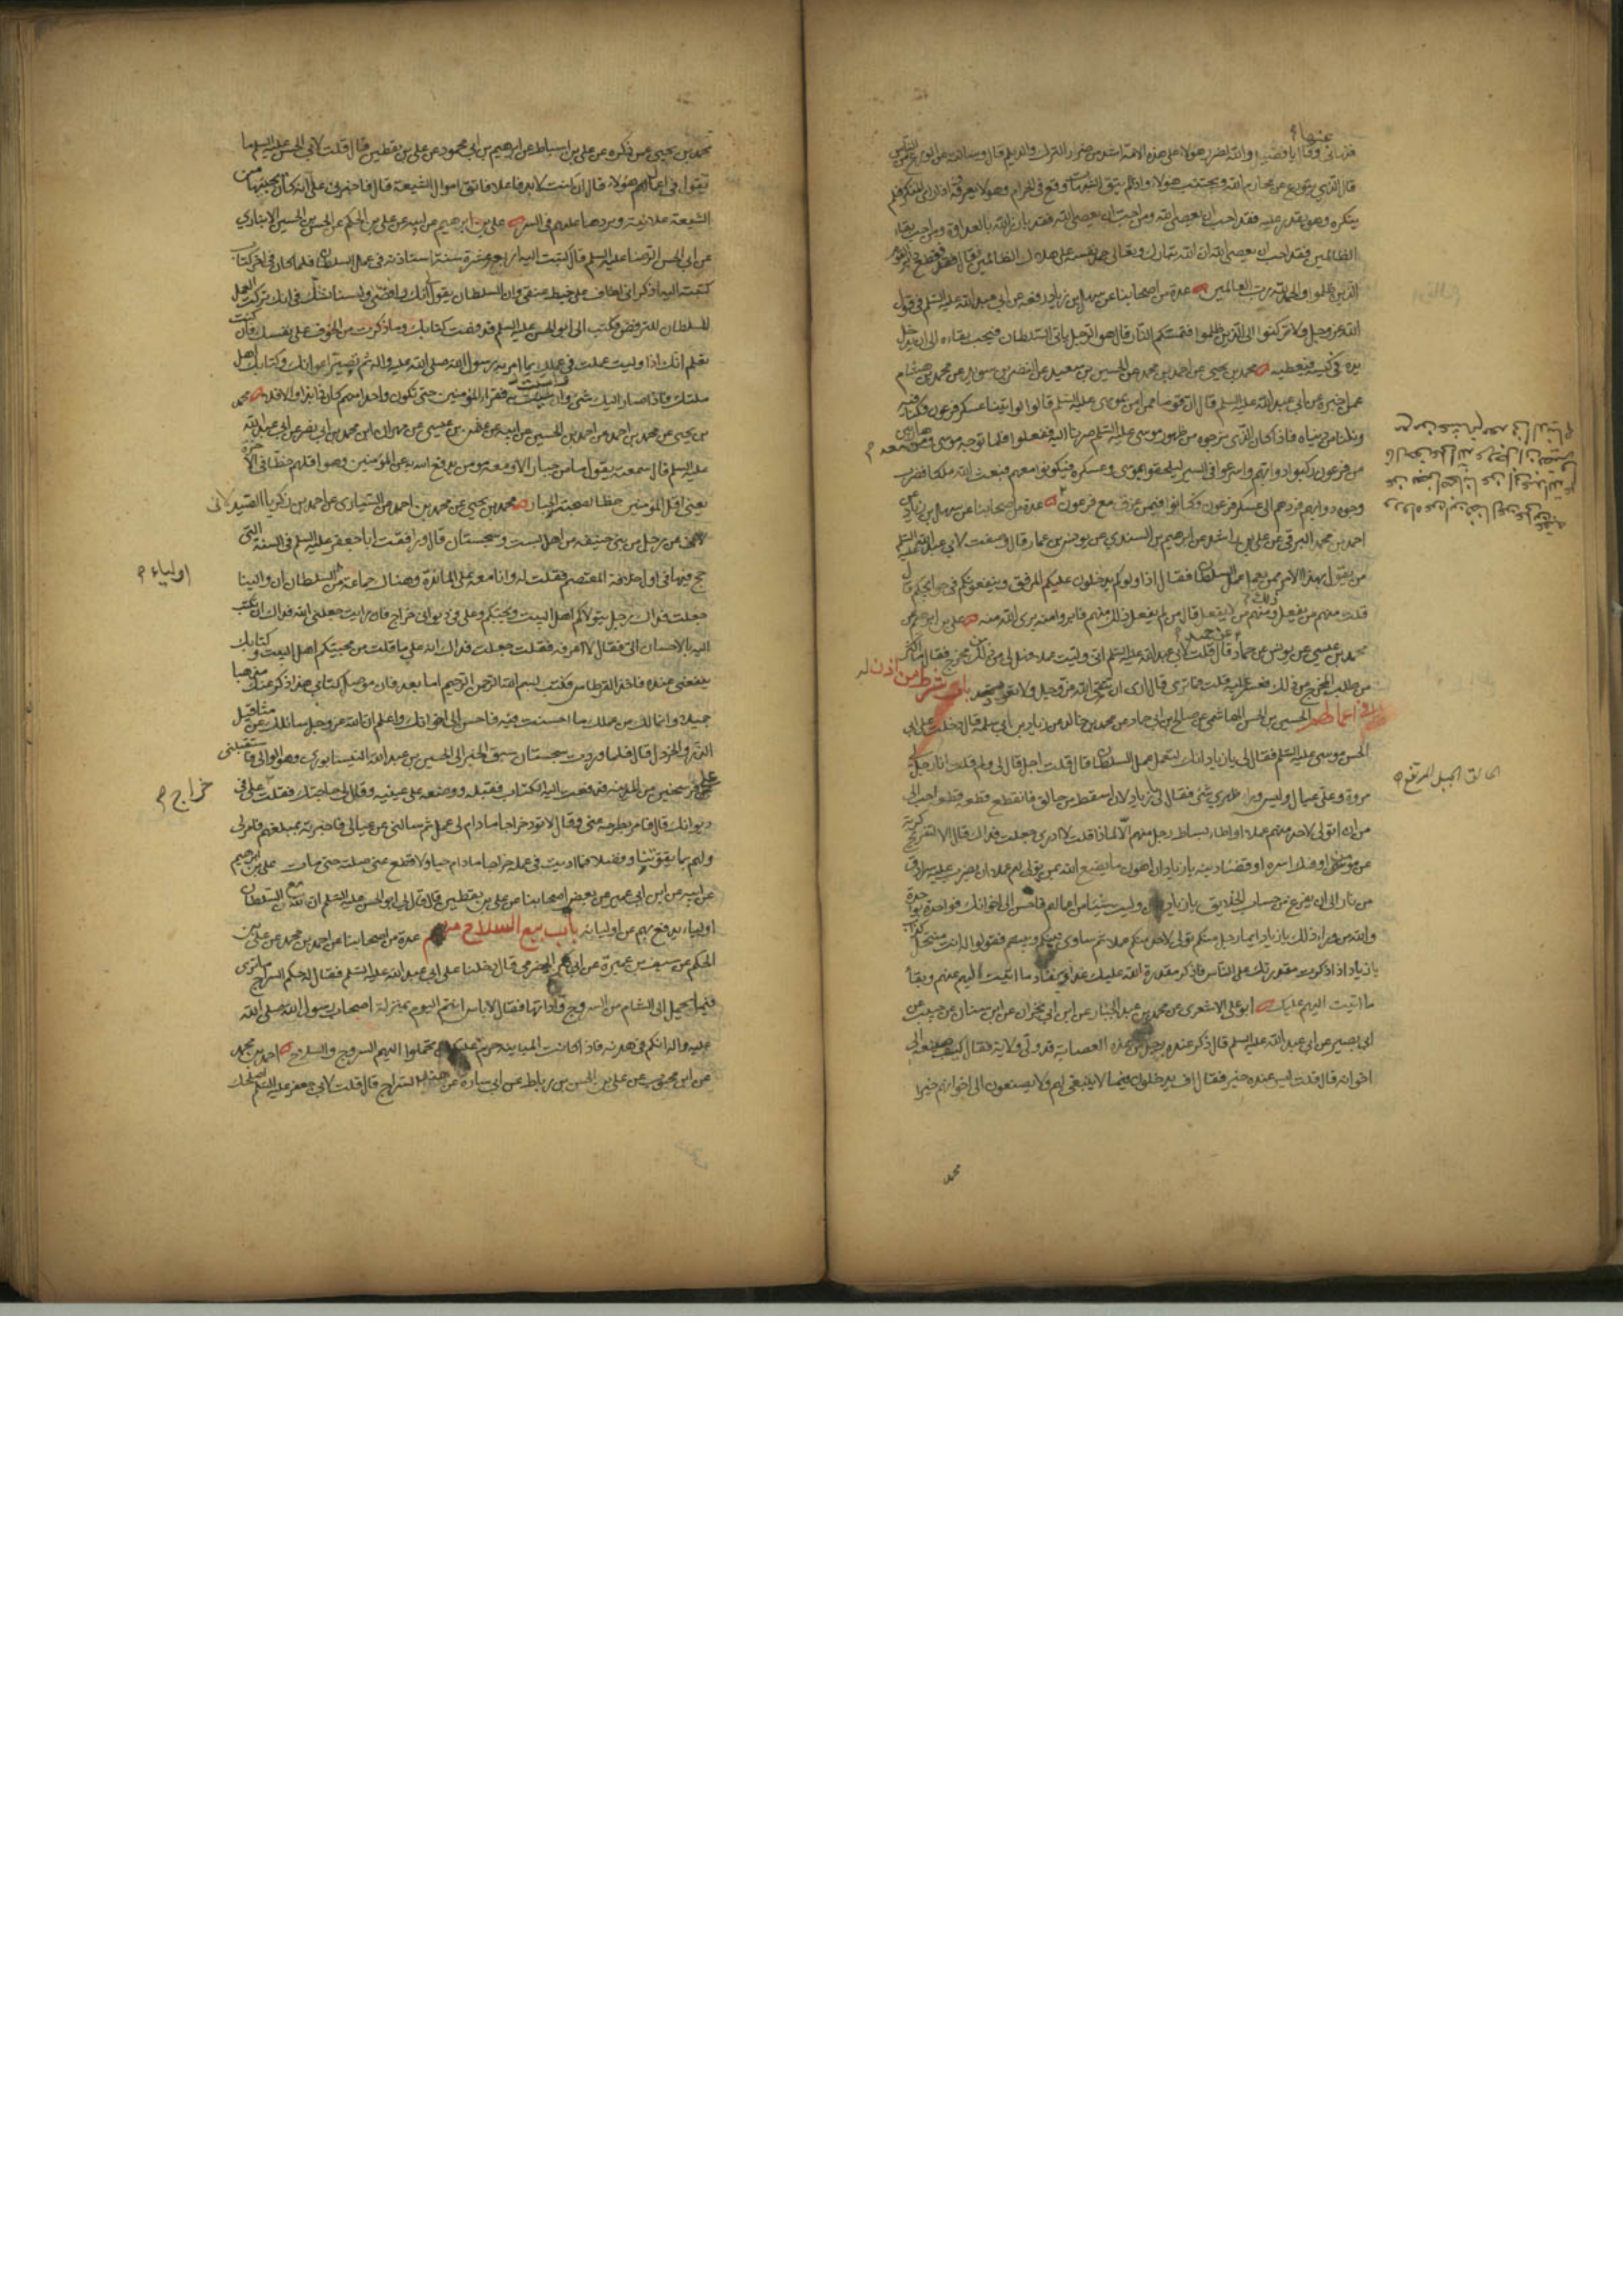 فزبرني وقال يا فضيل والله لضرر هؤلاء على هذه الامة اشد من ضرر الترك والديلم قال وسالته عن الورع من الناس
قال الذي يتورع عن محارم الله ويجتنب هؤلاء واذا لم يتق الشبهات وقع في الحرام وهو لا يعرفه واذا راى المنكر فلم
ينكره وهو يقدر عليه فقد احب ان يعصى الله ومن احب ان يعصى الله فقد بارز الله بالعداوة ومن احب بقاء
الظالمين فقد احب ان يعصى الله ان الله تبارك وتعالى حمد نفسه على هلاك الظالمين فقال فقطع دابر القوم
الذين ظلموا والحمد لله رب العالمين عدة من اصحابنا عن سهل بن زياد رفعه عن ابي عبد الله عليه السلم في قول
الله عز وجل ولا تركنوا الى الذين ظلموا فتمسكم النار قال هو الرجل ياتي السلطان فيحب بقاءه الى ان يدخل
يده في كيسه فيعطيه محمد بن يحيى عن احمد بن محمد عن الحسين بن سعيد عن النضر بن سويد عن محمد بن هشام
عمن اخبره عن ابي عبد الله عليه السلم قال ان قوما ممن امن بموسى عليه السلم قالوا لو اتينا عسكر فرعون وكنا فيه
ونلنا من دنياه فاذا كان الذي نرجوه من ظهور موسى عليه السلم صرنا اليه ففعلوا فلما توجه موسى ومن معه
من فرعون ركبوا دوابهم واسرعوا في السير ليلحقوا بموسى وعسكره فيكونوا معهم فبعث الله ملكا فضرب
وجوه دوابهم فردهم الى عسكر فرعون وكانوا فيمن غرق مع فرعون عدة من اصحابنا عن سهل بن زياد عن
احمد بن محمد البرقي عن علي بن راشد عن ابرهيم بن السندي عن يونس بن عمار قال وصفت لابي عبد الله عليه السلم
من يقول بهذا الامر ممن يعمل عمل السلطان فقال اذا ولوكم يدخلون عليكم المرفق وينفعونكم في حوائجكم قال
قلت منهم من يفعل ذلك ومنهم من لا يفعل قال من لم يفعل ذلك منهم فابرؤا منه برى الله منه علي بن ابرهيم عن
محمد بن عيسى عن يونس عن حماد عن حميد قال قلت لابي عبد الله عليه السلم اني وليت عملا فهل لي من ذلك مخرج فقال ما اكثر
من طلب المخرج من ذلك فعسر عليه قلت فما ترى قال ارى ان تتقي الله عز وجل ولا تعود باب شرط من اذن له
في اعمالهم الحسين بن الحسن الهاشمي عن صالح بن ابي حماد عن محمد بن خالد عن زياد بن ابي سلمة قال دخلت على ابي
الحسن موسى عليه السلم فقال لي يا زياد انك لتعمل عمل السلطان قال قلت اجل قال لي ولم قلت انا رجل لي
مروة وعلي عيال وليس وراء ظهري شئ فقال لي يا زياد لان اسقط من حالق فانقطع قطعة قطعة احب الي
من ان اتولى لاحد منهم عملا او اطاء بساط رجل منهم الا لماذا قلت لا ادري جعلت فداك قال الا لتفريج كربة
عن مؤمن او فك اسره او قضاء دينه يا زياد ان اهون ما يصنع الله بمن تولى لهم عملا ان يضرب عليه سرادق
من نار الى ان يفرغ من حساب الخلايق يا زياد وليت شيئا من اعمالهم فاحسن الى اخوانك فواحدة بواحدة
والله من وراء ذلك يا زياد ايما رجل منكم تولى لاحد منهم عملا ثم ساوى بينكم وبينهم فقولوا له انت منتحل كذاب
يا زياد اذا ذكرت مقدرتك على الناس فاذكر مقدرة الله عليك غدا ونفاد ما اتيت اليهم عنهم وبقاء
ما اتيت اليهم عليك ابو علي الاشعري عن محمد بن عبد الجبار عن ابن ابي نجران عن ابن سنان عن حبيب عن
ابي بصير عن ابي عبد الله عليه السلم قال ذكر عنده رجل من هذه العصابة قد ولي ولاية فقال كيف صنيعه الى
اخوانه قال قلت ليس عنده خير فقال اف يدخلون فيما لا ينبغي لهم ولا يصنعون الى اخوانهم خيرا
الحالق الجبل المرتفع
محمد
محمد بن يحيى عمن ذكره عن علي بن اسباط عن ابرهيم بن ابي محمود عن علي بن يقطين قال قلت لابي الحسن عليه السلم ما
تقول في اعمال هؤلاء قال ان كنت لابد فاعلا فاتق اموال الشيعة قال فاخبرني علي انه كان يجبيها من
الشيعة علانية ويردها عليهم في السر علي بن ابرهيم عن ابيه عن علي بن الحكم عن الحسن بن الحسين الانباري
عن ابي الحسن الرضا عليه السلم قال كتبت اليه اربع عشرة سنة استاذنه في عمل السلطان فلما كان في اخر كتاب
كتبته اليه اذكر اني اخاف على خيط عنقي وان السلطان يقول انك رافضي ولسنا نشك في انك تركت العمل
للسلطان للترفض فكتب الي ابو الحسن عليه السلم قد فهمت كتابك وما ذكرت من الخوف على نفسك فان كنت
تعلم انك اذا وليت عملت في عملك بما امر به رسول الله صلى الله عليه واله ثم تصير اعوانك وكتابك اهل
ملتك فاذا صار اليك شئ واسيت به فقراء المؤمنين حتى تكون واحدا منهم كان ذا بذا والا فلا محمد
بن يحيى عن محمد بن احمد عن احمد بن الحسين عن ابيه عن عثمن بن عيسى عن مهران ابن محمد بن ابي نصر عن ابي عبد الله
عليه السلم قال سمعته يقول ما من جبار الا ومعه مؤمن يدفع الله به عن المؤمنين وهو اقلهم حظا في الاخرة
يعني اقل المؤمنين حظا لصحبة الجبار محمد بن يحيى عن محمد بن احمد عن السياري عن احمد بن زكريا الصيدلاني
عن رجل من بني حنيفه من اهل بست وسجستان قال رافقت ابا جعفر عليه السلم في السنة التي
حج فيها في اول خلافة المعتصم فقلت له وانا معه على المائدة وهناك جماعة من السلطان ان والينا
جعلت فداك رجل يتولاكم اهل البيت ويحبكم وعلي في ديوانه خراج فان رايت جعلني الله فداك ان تكتب
اليه بالاحسان الي فقال لا اعرفه فقلت جعلت فداك انه على ما قلت من محبيكم اهل البيت وكتابك
ينفعني عنده فاخذ القرطاس فكتب بسم الله الرحمن الرحيم اما بعد فان موصل كتابي هذا ذكر عنك مذهبا
جميلا وانما لك من عملك ما احسنت فيه فاحسن الى اخوانك واعلم ان الله عز وجل سائلك عن مثاقيل
الذر والخردل قال فلما وردت سجستان سبق الخبر الى الحسين بن عبد الله النيسابوري وهو الوالي فاستقبلني
على فرسخين من المدينة فدفعت اليه الكتاب فقبله ووضعه على عينيه وقال لي حاجتك فقلت علي في
ديوانك قال فامر بطرحه عني وقال لا تود خراجا ما دام لي عمل ثم سالني عن عيالي فاخبرته بمبلغهم فامر لي
ولهم بما يقوتنا وفضلا فما اديت في عمله خراجا ما دام حيا ولا قطع عني صلته حتى مات علي بن ابرهيم
عن ابيه عن ابن ابي عمير عن بعض اصحابنا عن علي بن يقطين قال قال لي ابو الحسن عليه السلم ان لله مع السلطان
اولياء يدفع بهم عن اوليائه باب بيع السلاح منهم عدة من اصحابنا عن احمد بن محمد عن علي بن
الحكم عن سيف بن عميرة عن ابي بكر الحضرمي قال دخلنا على ابي عبد الله عليه السلم فقال له حكم السراج ما ترى
فيما يحمل الى الشام من السروج واداتها فقال لا باس انتم اليوم بمنزلة اصحاب رسول الله صلى الله
عليه واله انكم في هدنه فاذا كانت المباينه حرم عليكم ان تحملوا اليهم السروج والسلاح احمد بن محمد
عن ابن محبوب عن علي بن الحسن بن رباط عن ابي سارة عن هند السراج قال قلت لابي جعفر عليه السلم اصلحك
اولياء
خراج